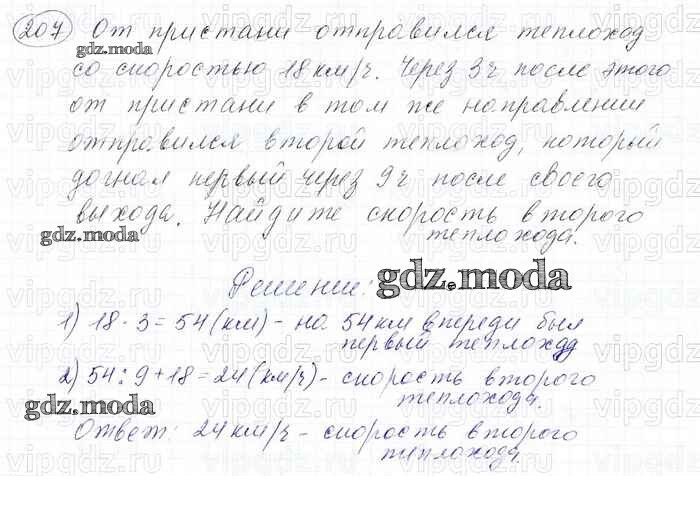 207 От пристани отправился теплоход
gdz.moda
со скоростью 18 км/ч. Через 3ч после этого
от пристани в том же направлении
отправился второй теплоход, который
догнал первый через 9ч после своего
выхода. Найдите скорость второго
теплохода.
gdz.moda
Решение:
gdz.moda
1) 18 · 3 = 54 (км) - на 54 км впереди был
первый теплоход
2) 54 : 9 + 18 = 24 (км/ч) - скорость второго
теплохода.
gdz.moda
Ответ: 24 км/ч - скорость второго
теплохода.